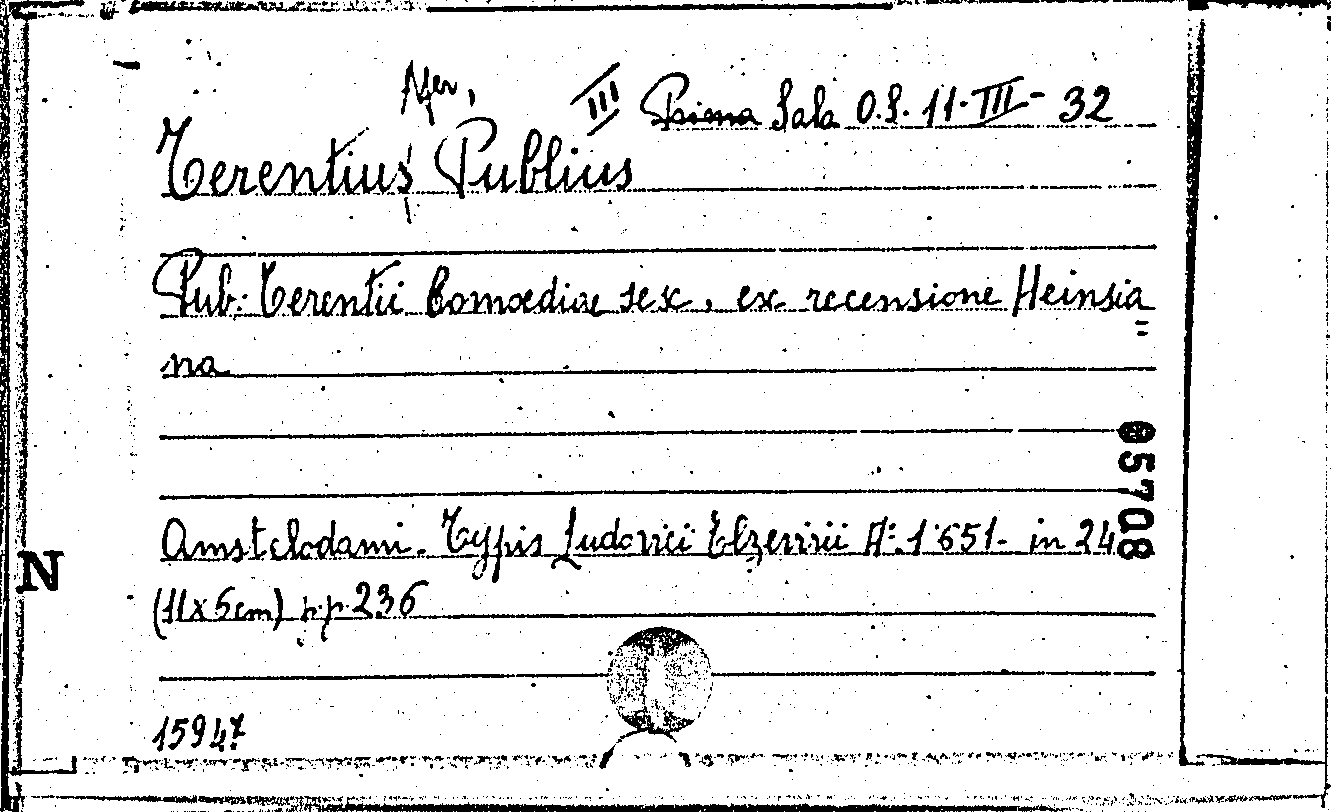 Afer,
III Prima Sala O.S. 11-III-32
Terentius Publius
Pub: Terentii Comoediae sex, ex recensione Heinsia=
na
05708
Amstelodami. Typis Ludovici Elzevirii A°. 1651- in 24
N
(11x5cm) pp. 236
15947